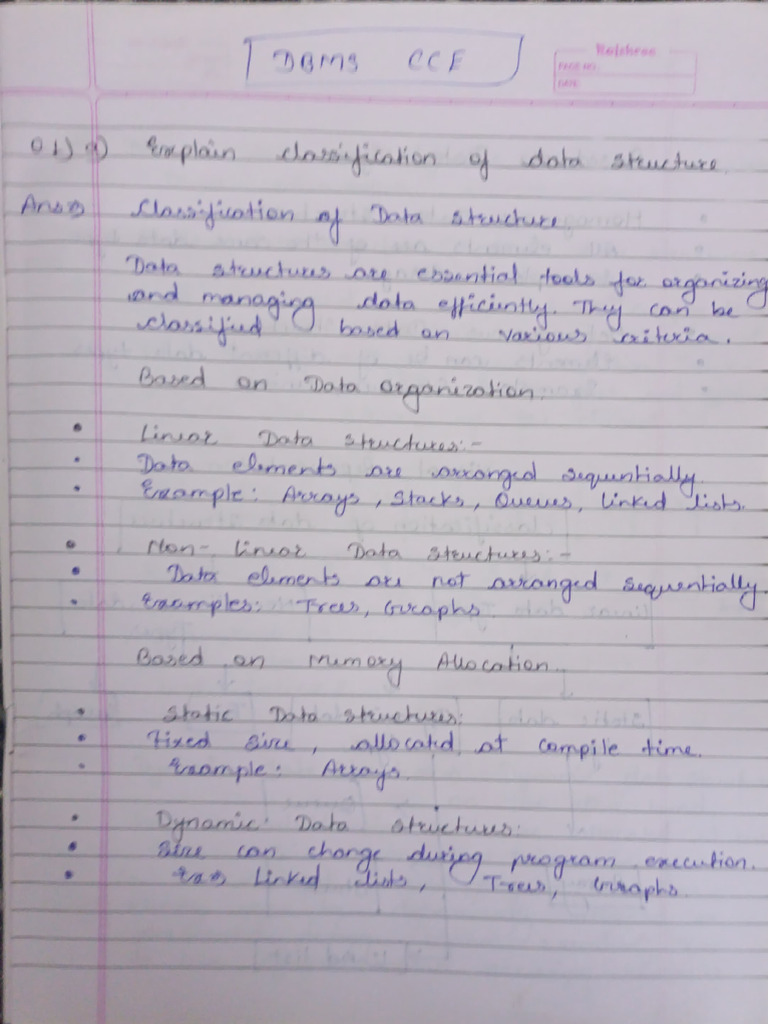 DBMS CCE
Kalchrao
PAGE NO.
DATE
Q1) A) Explain classification of data structure
Ans:- Classification of Data structure.
Data structures are essential tools for organizing
and managing data efficiently. They can be
classified based on various criteria.
Based on Data organization.
• Linear Data structures:-
• Data elements are arranged sequentially.
• Example: Arrays, Stacks, Queues, linked lists.
• Non-linear Data structures:-
• Data elements are not arranged sequentially
• Examples: Trees, Graphs.
Based on Memory Allocation.
• Static Data structures:
• Fixed size, allocated at compile time.
• Example: Arrays.
• Dynamic Data structures:
• Size can change during program execution.
• Ex:- Linked lists, Trees, Graphs